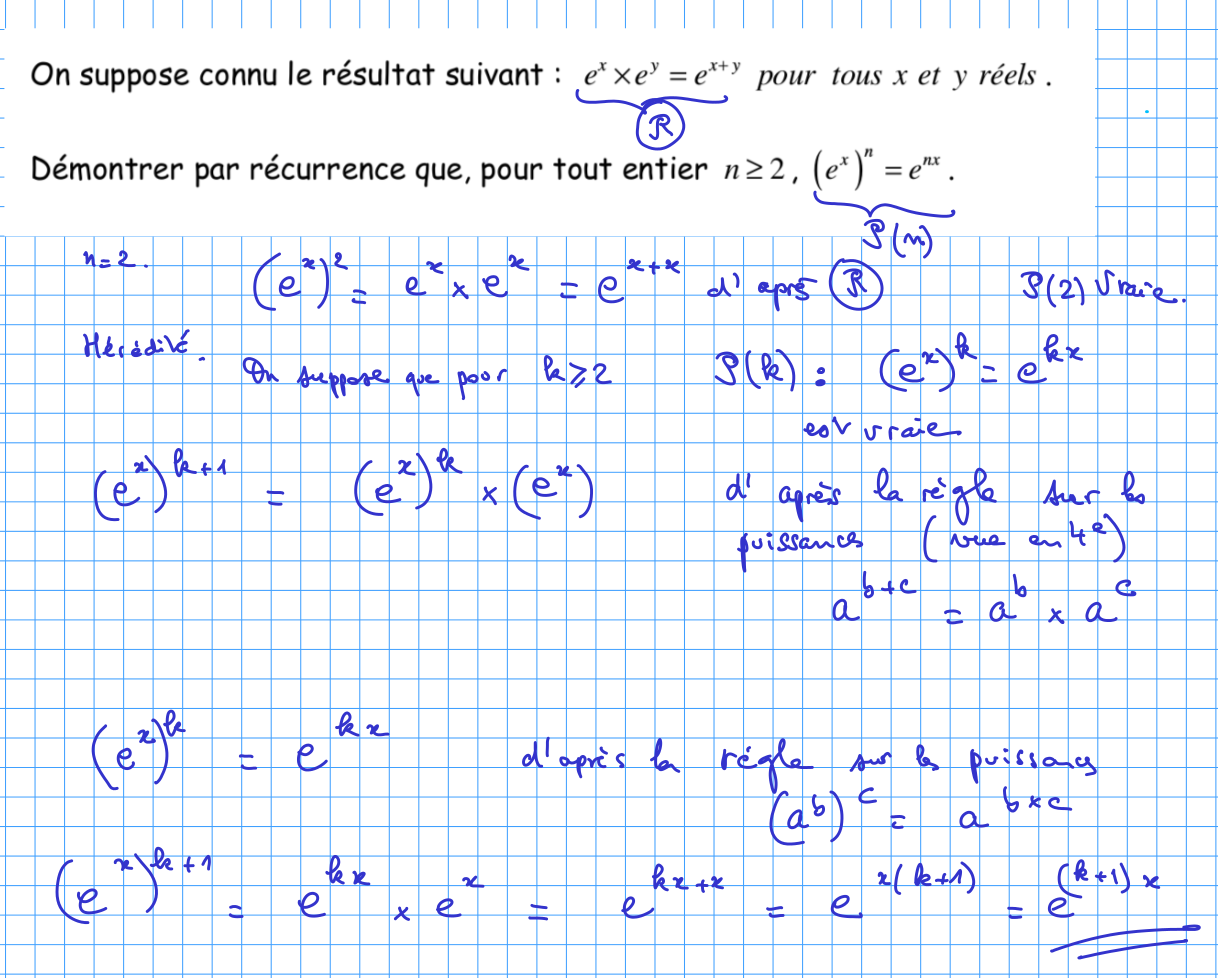 On suppose connu le résultat suivant : e^x × e^y = e^{x+y} pour tous x et y réels .
ℛ
Démontrer par récurrence que, pour tout entier n ≥ 2, (e^x)^n = e^{nx} .
𝒫(n)
n=2. (e^x)^2 = e^x × e^x = e^{x+x} d'après ℛ 𝒫(2) Vraie.
Hérédité. On suppose que pour k ⩾ 2 𝒫(k) : (e^x)^k = e^{kx}
est vraie
(e^x)^{k+1} = (e^x)^k × (e^x) d'après la règle sur les
puissances (vue en 4^e)
a^{b+c} = a^b × a^c
(e^x)^k = e^{kx} d'après la régle sur les puissances
(a^b)^c = a^{b×c}
(e^x)^{k+1} = e^{kx} × e^x = e^{kx+x} = e^{x(k+1)} = e^{(k+1)x}